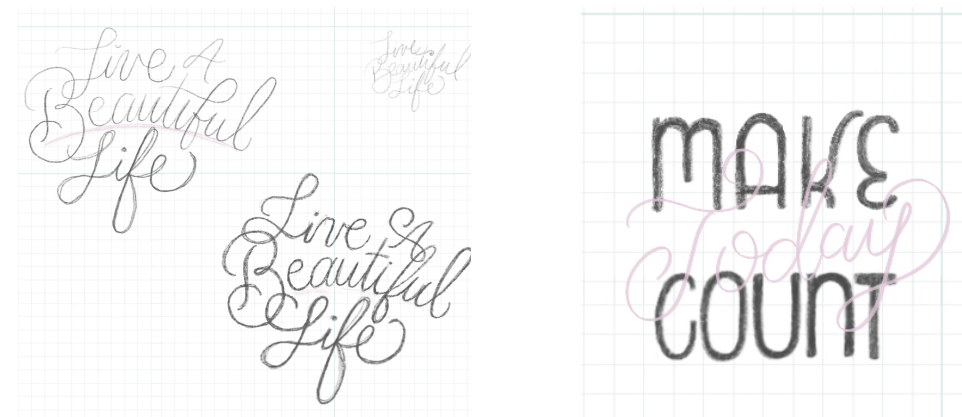 Live A
Beautiful
Life
Live
Beautiful
Life
Live A
Beautiful
Life
MAKE
Today
COUNT